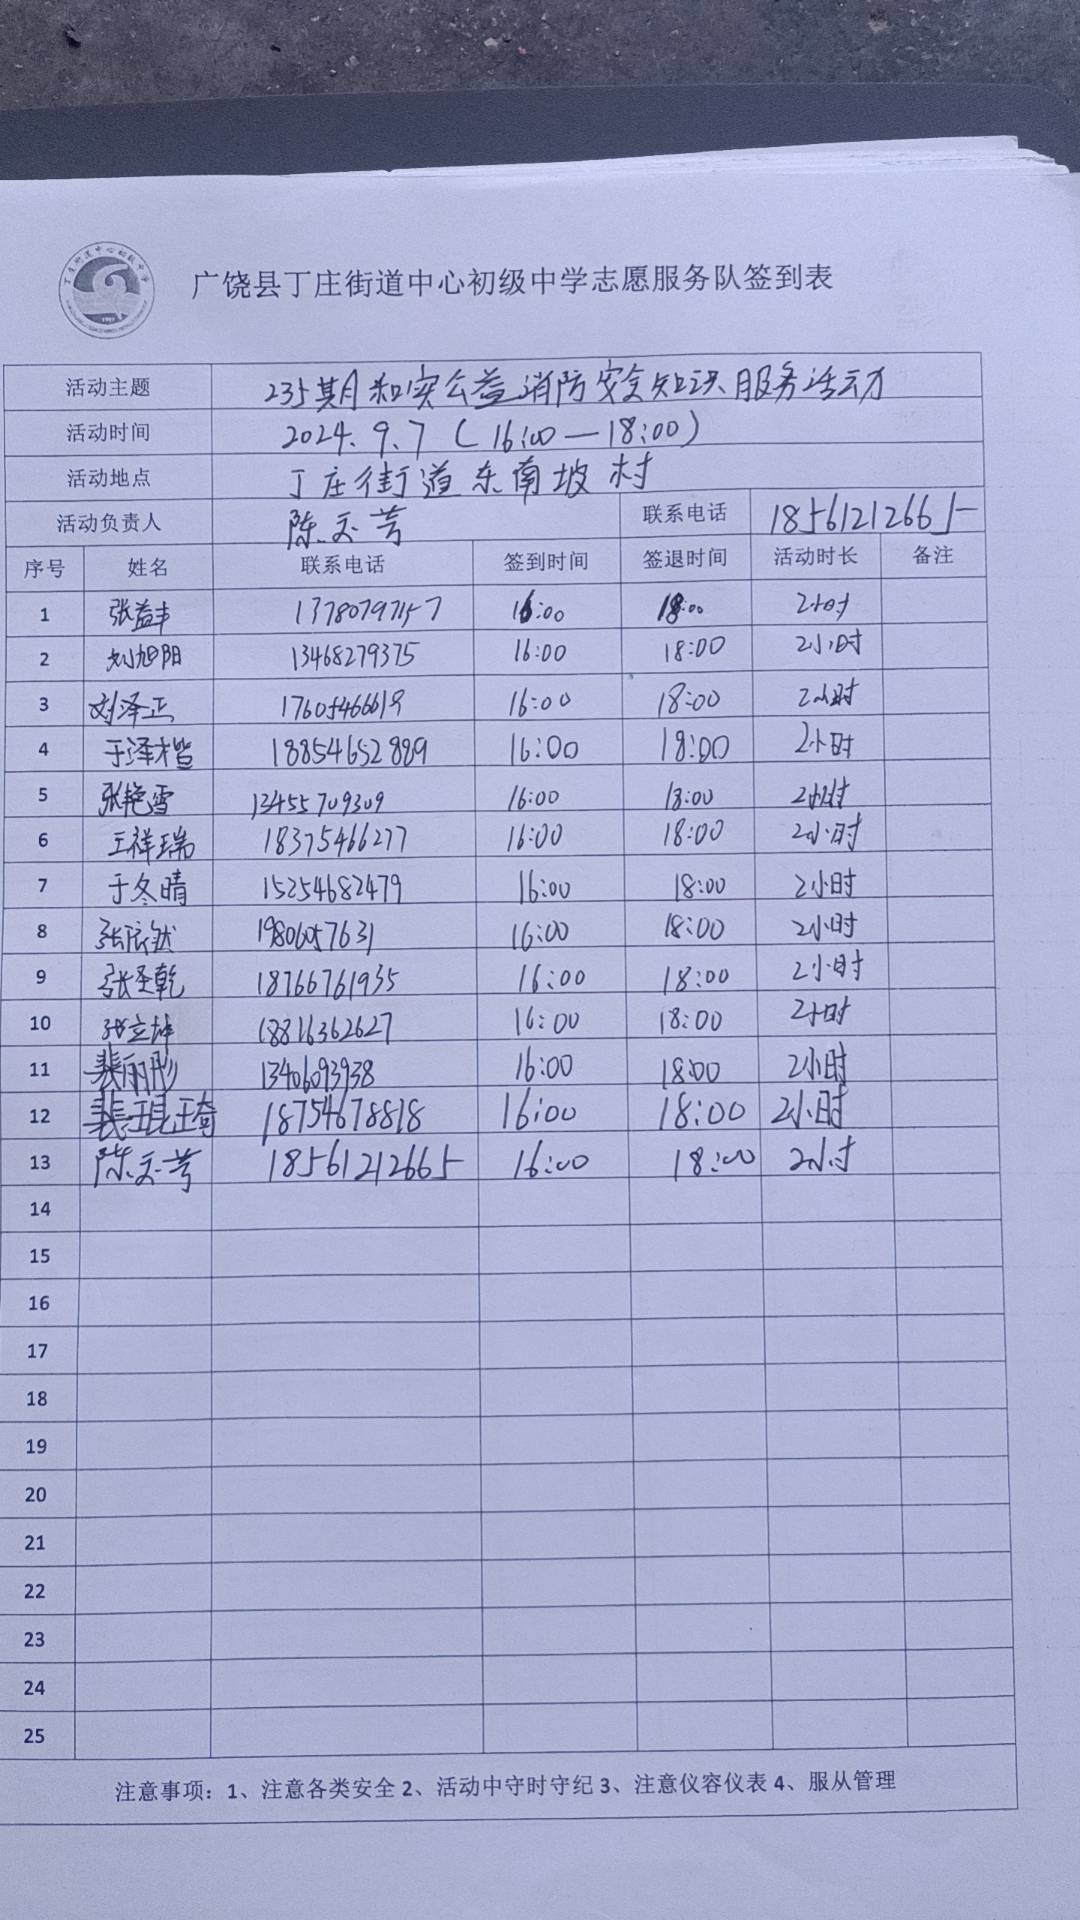 丁庄街道中心初级中学
广饶县丁庄街道中心初级中学志愿服务队签到表
活动主题 235期和实公益消防安全知识服务活动
活动时间 2024.9.7（16:00—18:00）
活动地点 丁庄街道东南坡村
活动负责人 陈玉芳 联系电话 18561212665
序号 姓名 联系电话 签到时间 签退时间 活动时长 备注
1 张益丰 13780797157 16:00 18:00 2小时
2 刘旭阳 13468279375 16:00 18:00 2小时
3 刘泽正 17605466619 16:00 18:00 2小时
4 于泽楷 18854652889 16:00 18:00 2小时
5 张艳雪 13455709309 16:00 18:00 2小时
6 王祥瑞 18375466277 16:00 18:00 2小时
7 于冬晴 15254682479 16:00 18:00 2小时
8 张依然 19806057631 16:00 18:00 2小时
9 张圣乾 18766761935 16:00 18:00 2小时
10 张立坤 18816362627 16:00 18:00 2小时
11 裴丽彤 13406093938 16:00 18:00 2小时
12 裴琨琦 18754678818 16:00 18:00 2小时
13 陈玉芳 18561212665 16:00 18:00 2小时
14
15
16
17
18
19
20
21
22
23
24
25
注意事项：1、注意各类安全 2、活动中守时守纪 3、注意仪容仪表 4、服从管理